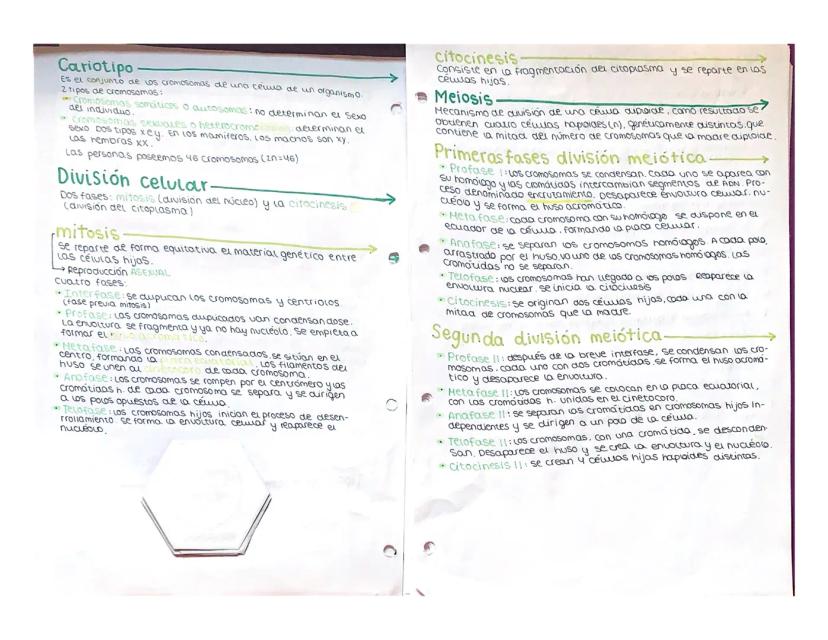 Cariotipo
Es el conjunto de los cromosomas de una célula de un organismo.
2 tipos de cromosomas:
Cromosomas somáticos o autosomas: no determinan el sexo
del individuo.
Cromosomas sexuales o heterocromosomas determinan el
sexo. Dos tipos x e y. En los mamíferos, los machos son xy.
Las hembras xx.
Las personas poseemos 46 cromosomas (2n=46)
División celular
Dos fases: mitosis (división del núcleo) y la citocinesis
(división del citoplasma)
mitosis
Se reparte de forma equitativa el material genético entre
las células hijas.
Reproducción ASEXUAL
Cuatro fases:
Interfase: se duplican los cromosomas y centriolos
(fase previa mitosis)
Profase: Los cromosomas duplicados van condensandose.
La envoltura se fragmenta y ya no hay nucléolo. Se empieza a
formar el huso acromático.
Metafase: Las cromosomas condensados, se sitúan en el
centro, formando la placa ecuatorial. Los filamentos del
huso se unen al cinetocoro de cada cromosoma.
Anafase: Los cromosomas se rompen por el centrómero y las
cromátidas h. de cada cromosoma se separa y se dirigen
a los polos opuestos de la célula.
Telofase: Los cromosomas hijos inician el proceso de desen-
rrollamiento. Se forma la envoltura celular y reaparece el
nucleolo.
citocinesis
Consiste en la fragmentación del citoplasma y se reparte en las
células hijas.
Meiosis
Mecanismo de división de una célula diploide, como resultado se
obtienen cuatro células haploides (n), genéticamente distintas, que
contiene la mitad del número de cromosomas que la madre diploide.
Primeras fases división meiótica
Profase I: Los cromosomas se condensan. Cada uno se aparea con
su homólogo y las cromátidas intercambian segmentos de ADN. Pro-
ceso denominado encrutamiento. Desaparece envoltura celular, nu-
cléolo y se forma el huso acromático.
Metafase: cada cromosoma con su homólogo se dispone en el
ecuador de la célula, formando la placa celular.
Anafase: se separan los cromosomas homólogos. A cada polo,
arrastrado por el huso, va uno de los cromosomas homólogos. Las
cromátidas no se separan.
Telofase: los cromosomas han llegado a los polos. Reaparece la
envoltura nuclear. Se inicia la citocinesis
Citocinesis: se originan dos células hijas, cada una con la
mitad de cromosomas que la madre.
Segunda división meiótica
Profase II: después de la breve interfase, se condensan los cro-
mosomas, cada uno con dos cromátidas. se forma el huso acromá-
tico y desaparece la envoltura.
Metafase II: Los cromosomas se colocan en la placa ecuatorial,
con las cromátidas h. unidas en el cinetocoro.
Anafase II: se separan las cromátidas en cromosomas hijos in-
dependientes y se dirigen a un polo de la célula.
Telofase II: Los cromosomas, con una cromátida, se desconden-
san. Desaparece el huso y se crea la envoltura y el nucléolo.
Citocinesis II: se crean 4 células hijas haploides distintas.